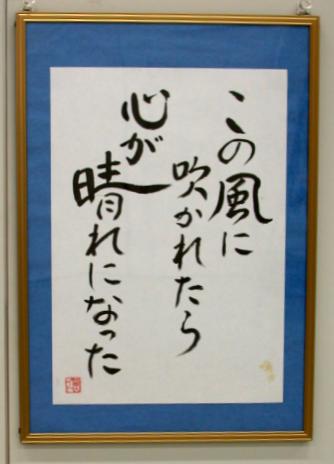 この風に
吹かれたら
心が
晴れになった